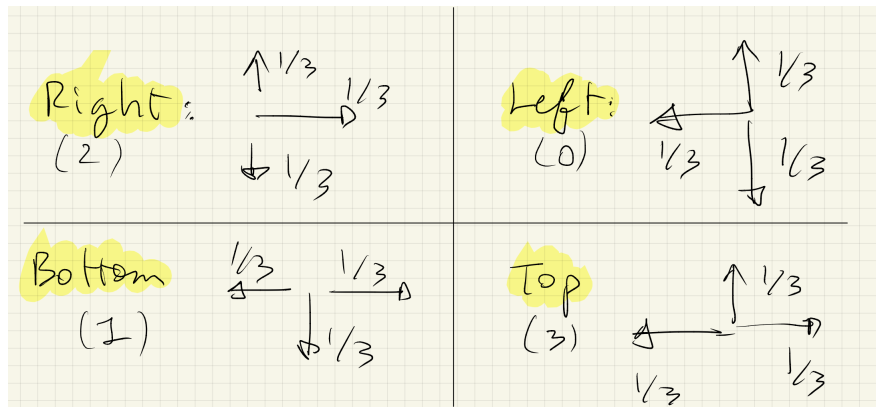 Right:
(2)
1/3
1/3
1/3
Left:
(0)
1/3
1/3
1/3
Bottom
(1)
1/3
1/3
1/3
Top
(3)
1/3
1/3
1/3